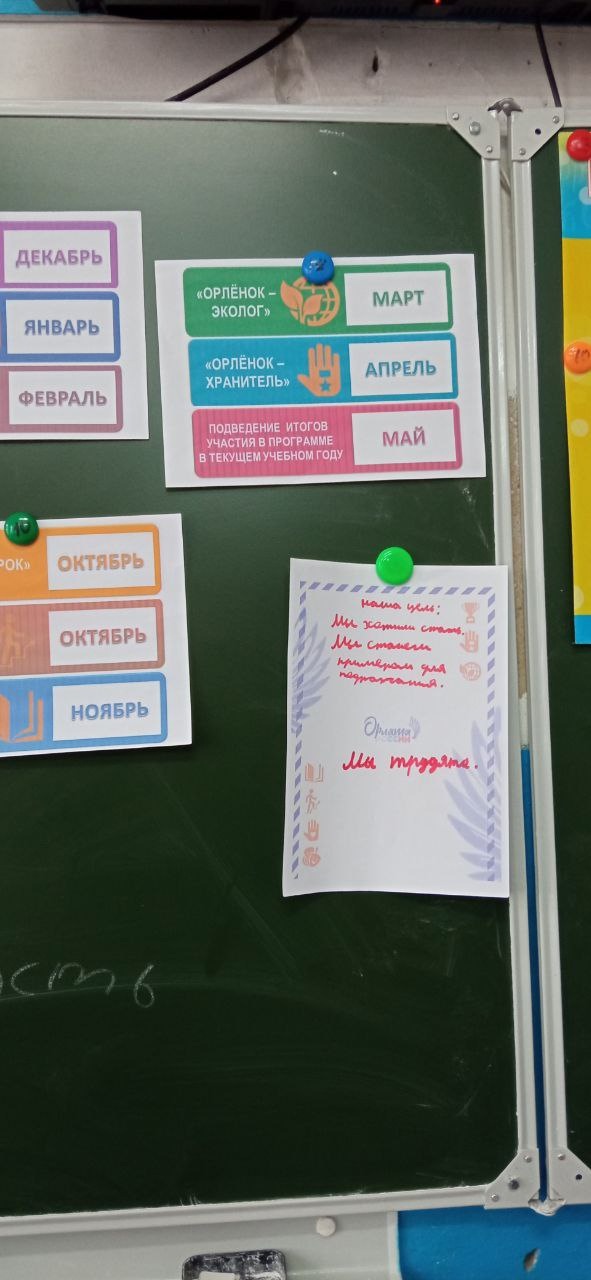 ДЕКАБРЬ
ЯНВАРЬ
ФЕВРАЛЬ
«ОРЛЁНОК –
ЭКОЛОГ»
МАРТ
«ОРЛЁНОК –
ХРАНИТЕЛЬ»
АПРЕЛЬ
ПОДВЕДЕНИЕ ИТОГОВ
УЧАСТИЯ В ПРОГРАММЕ
В ТЕКУЩЕМ УЧЕБНОМ ГОДУ
МАЙ
10
РОК»
ОКТЯБРЬ
ОКТЯБРЬ
НОЯБРЬ
Наша цель:
Мы хотим стать.
Мы станем
примером для
подражания.
Орлята
РОССИИ
Мы трудяги.
ость
10